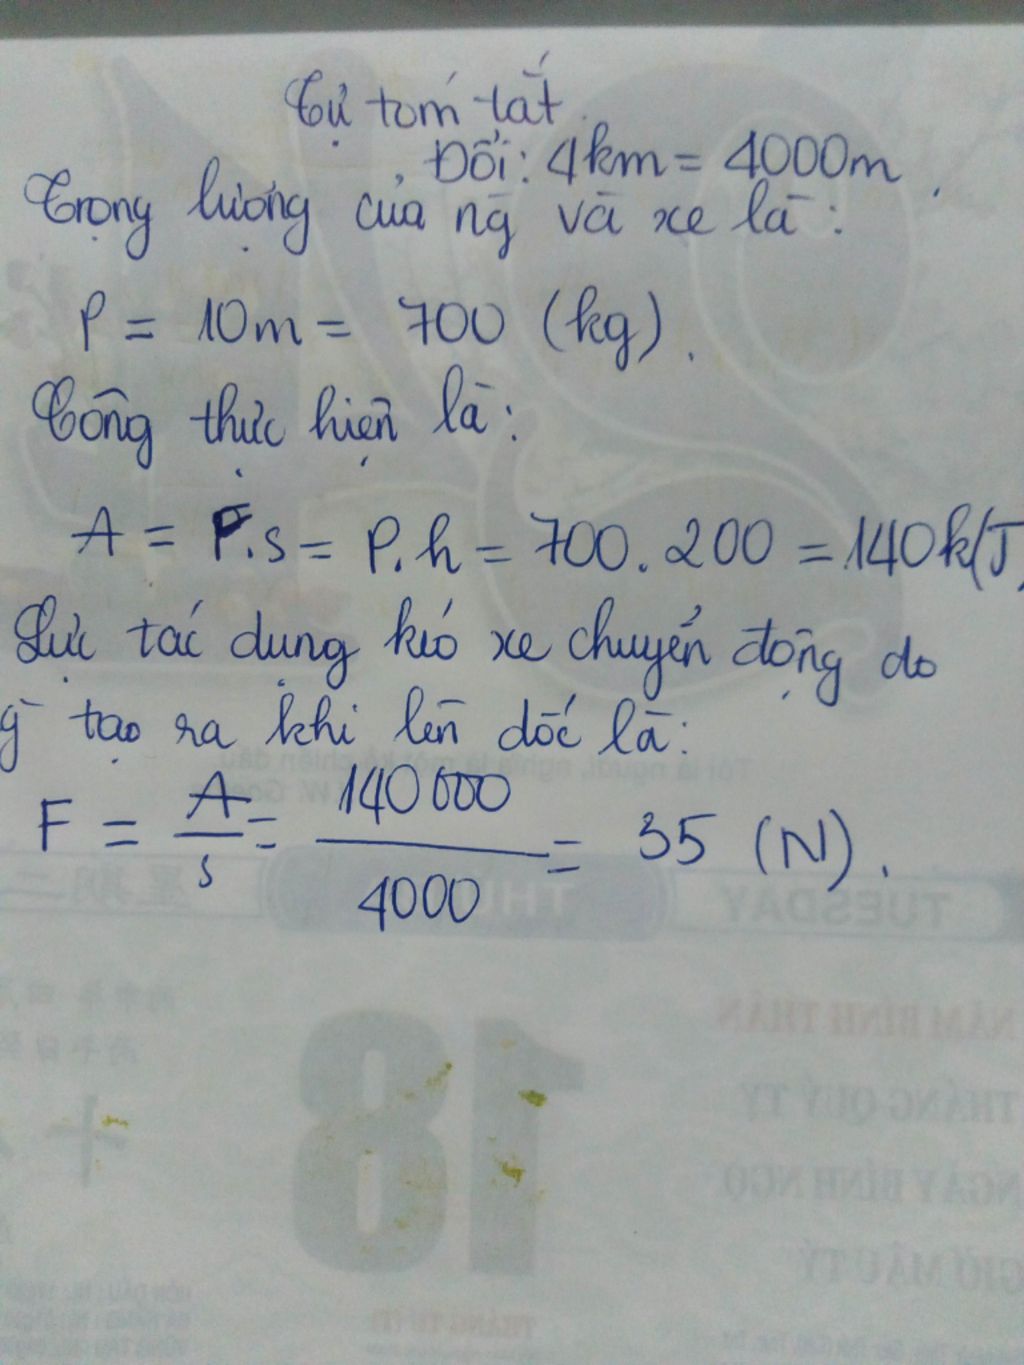 Tự tóm tắt.
Đổi: 4km = 4000m.
Trọng lượng của ng và xe là:
P = 10m = 700 (kg).
Công thực hiện là:
A = F.s = P.h = 700.200 = 140k(J)
Lực tác dụng kéo xe chuyển động do
tạo ra khi lên dốc là:
F = A/s = 140000/4000 = 35 (N).
TUESDAY
星期二
18
NĂM BÍNH THÂN
THÁNG QUÝ TỴ
NGÀY BÍNH NGỌ
GIỜ MẬU TÝ